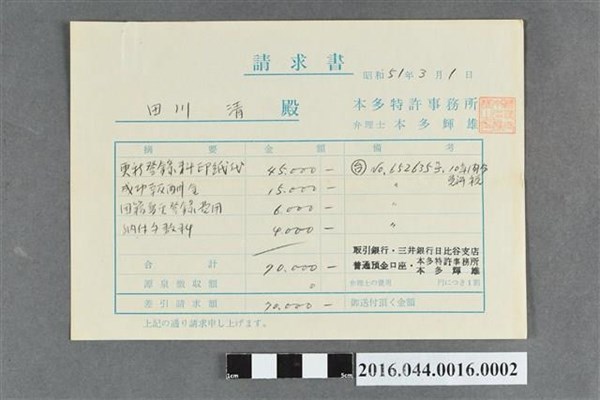 請求書
昭和51年3月1日
田川 清 殿
本多特許事務所
弁理士 本多輝雄
摘要 金額 備考
更新登録料印紙代 45.000- No.652635号
成功報酬金 15.000- 〃
6.000- 〃
納付手数料 4.000- 〃
取引銀行・三井銀行日比谷支店
普通預金口座・本多特許事務所
本多輝雄
合計 70.000-
源泉徴収額 0
弁理士の費用 円につき1割
差引請求額 70.000- 御送付頂く金額
上記の通り請求申し上げます。
1cm 5cm
2016.044.0016.0002